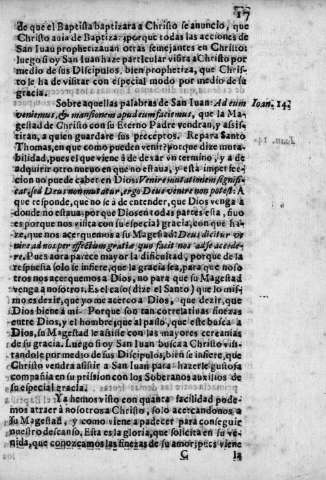 17
de que el Baptista baptizara a Christo se anuncio, que
Christo auia de Baptizar: porque todas las acciones de
San Iuan prophetizauan otras semejantes en Christo:
luego si oy San Iuan haze particular visita a Christo por
medio de sus Discipulos, bien prophetiza, que Chris-
to le ha de visitar con especial modo por medio de su
gracia.
Sobre aquellas palabras de San Iuan: Ad eum
Ioan. 14.
veniemus, & mansionem apud eum faciemus, que la Ma-
gestad de Christo con su Eterno Padre vendran, y assis-
tiran, a quien guardare sus preceptos. Repara Santo
Thomas, en que como pueden venir? porque dize mora-
bilidad, pues el que viene à de dexar vn termino, y a de
adquirir otro nueuo en que no estaua, y està imperfec-
cion no puede caber en Dios: Venire mutationem signifi-
cat, sed Deus non mutatur, ergo Deus venire non potest: A
que responde, que no se à de entender, que Dios venga à
donde no estaua: porque Dios en todas partes esta, sino
es porque nos visita con su especial gracia, con que ha-
ze, que nos acerquemos a su Magestad: Deus dicitur ve-
nire ad nos per effectum gratiæ quo facit nos ad se accede-
re. Pues aora parece mayor la dificultad, porque de la
respuesta solo se infiere, que la gracia sea, para que noso-
tros nos acerquemos a Dios, no para que su Magestad
venga a nosotros. Es el caso (dize el Santo) que lo mis-
mo es dezir, que yo me acerco a Dios, que dezir, que
Dios biene à mi. Porque son tan correlatiuas finezas
entre Dios, y el hombre, que al passo, que este busca a
Dios, su Magestad le assiste con las mayores cercanias
de su gracia. Luego si oy San Iuan busca a Christo visi-
tandole por medio de sus Discipulos, bien se infiere, que
Christo vendra assistir a San Iuan para hazerle gustosa
compañia en su prission con los Soberanos auxilios de
su especial gracia.
Ya hemos visto con quanta facilidad pode-
mos atraer à nosotros a Christo, solo acercandonos a
su Magestad, y como viene a padecer para conseguir
nuestro descanso. Esta es la gloria, que solicita en su ve-
nida, que conozcamos las finezas de su amor; pues viene
C
la